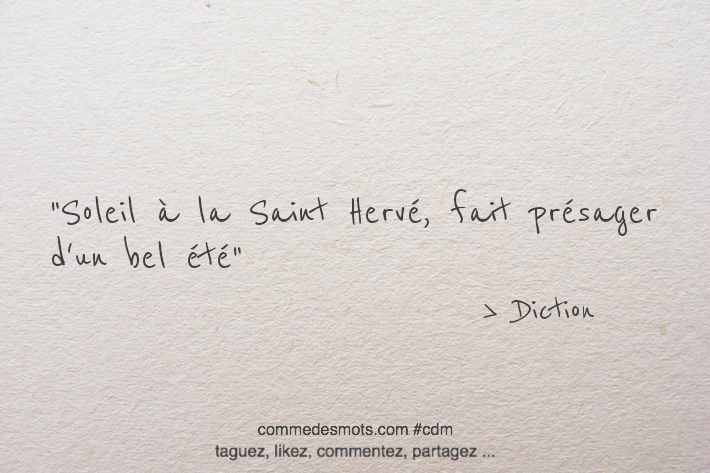 "Soleil à la Saint Hervé, fait présager
d'un bel été"
> Diction
commedesmots.com #cdm
taguez, likez, commentez, partagez ...